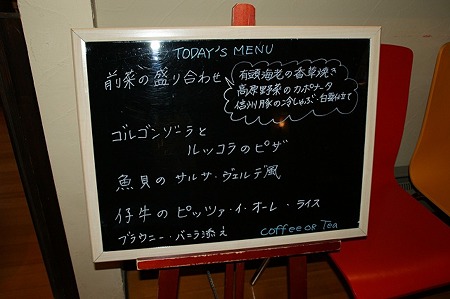 TODAY'S MENU
前菜の盛り合わせ
有頭海老の香草焼き
高原野菜のカポナータ
信州豚の冷しゃぶ・白雲仕立て
ゴルゴンゾーラと
ルッコラのピザ
魚貝の サルサ・ヴェルデ風
仔牛の ピッツァ・イ・オーレ・ライス
ブラウニー・バニラ添え
coffee or Tea